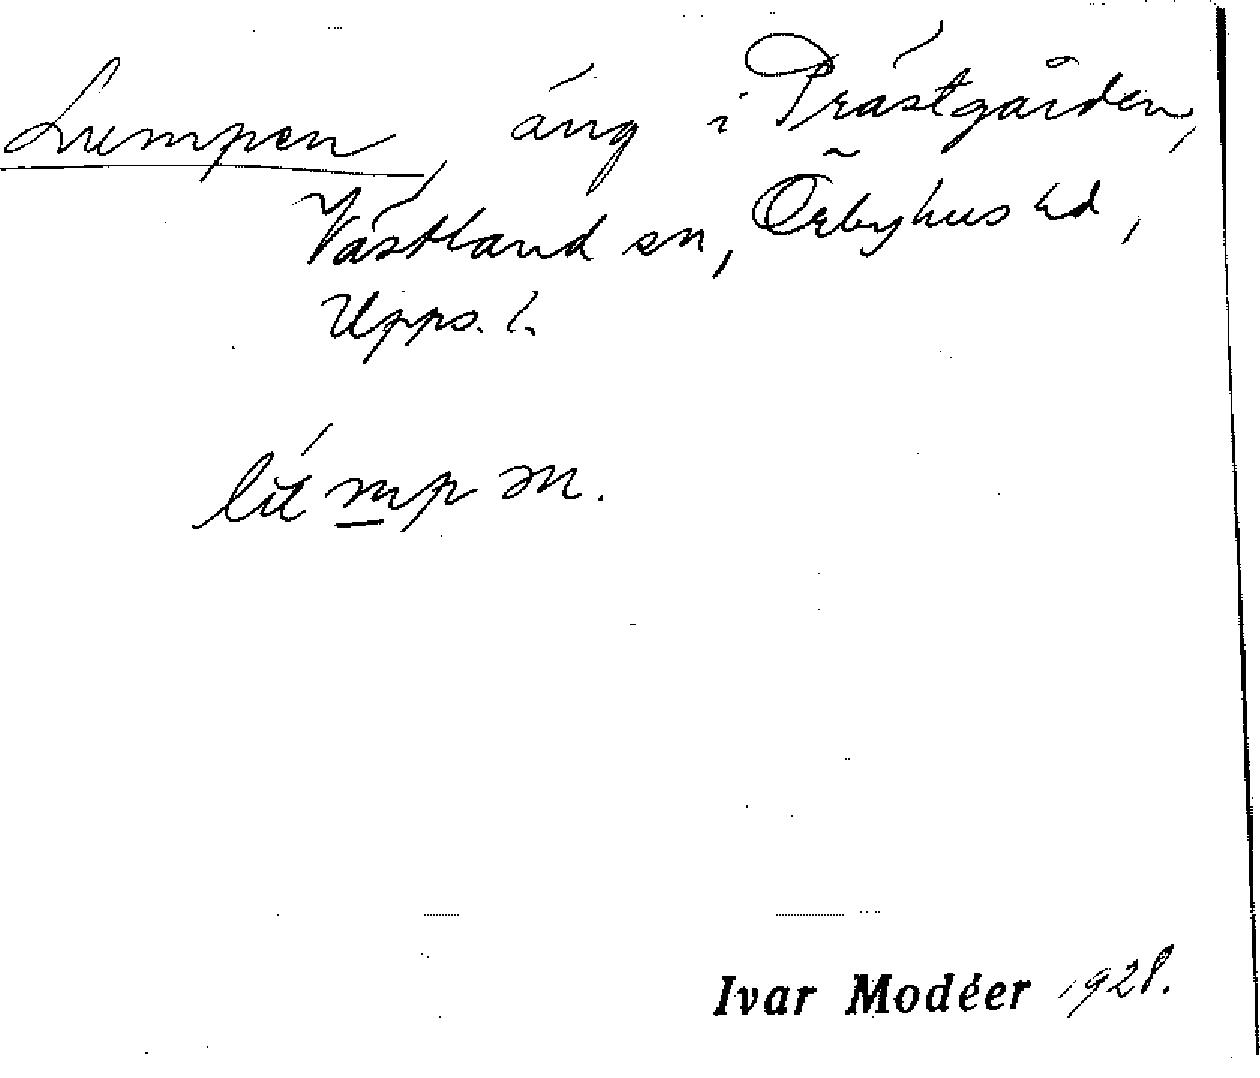 Lumpen, äng i Prästgården,
Västland sn, Örbyhus hd,
Upps. l.
Ivar Modéer 1928.